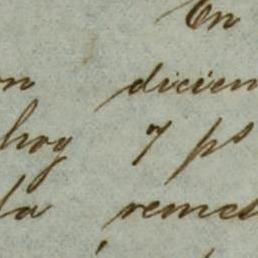 En
on diciem
hoy 7 ps
la remes